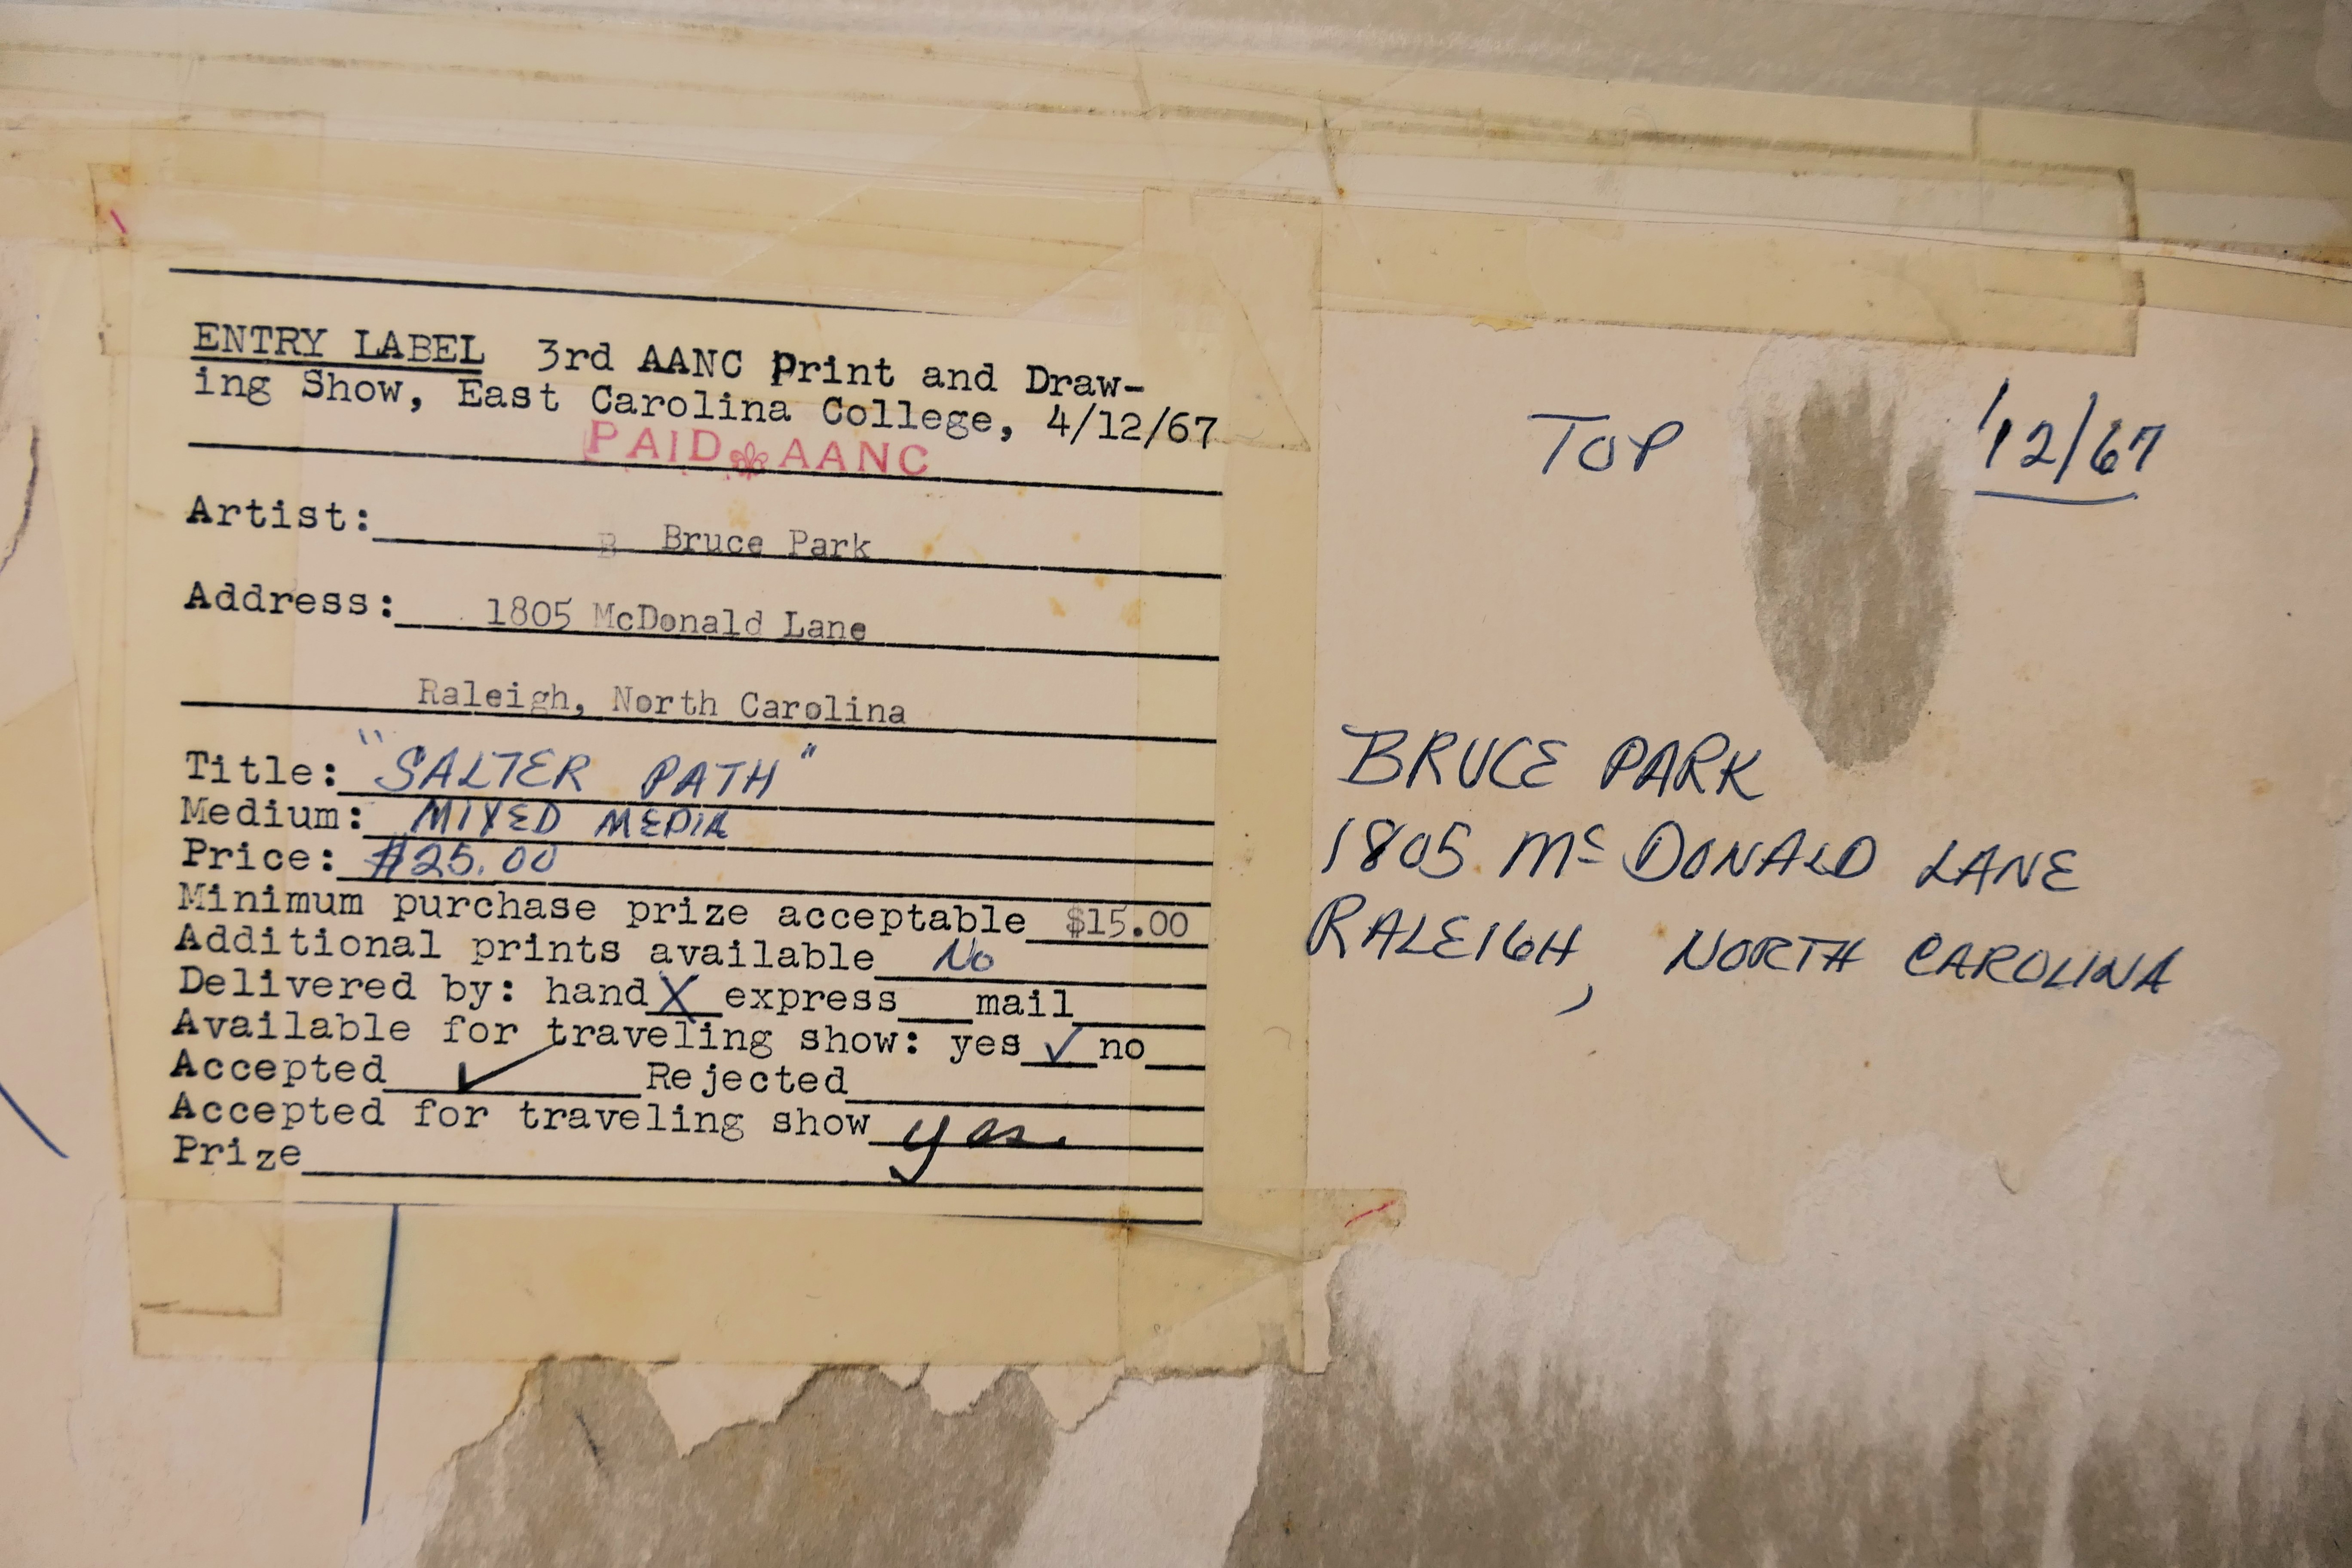 ENTRY LABEL 3rd AANC Print and Draw-
ing Show, East Carolina College, 4/12/67
PAID AANC
Artist: B Bruce Park
Address: 1805 McDonald Lane
Raleigh, North Carolina
Title: "SALTER PATH"
Medium: MIXED MEDIA
Price: $25.00
Minimum purchase prize acceptable $15.00
Additional prints available No
Delivered by: hand X express mail
Available for traveling show: yes ✓ no
Accepted ✓ Rejected
Accepted for traveling show yes.
Prize
TOP /12/67
BRUCE PARK
1805 Mc DONALD LANE
RALEIGH, NORTH CAROLINA